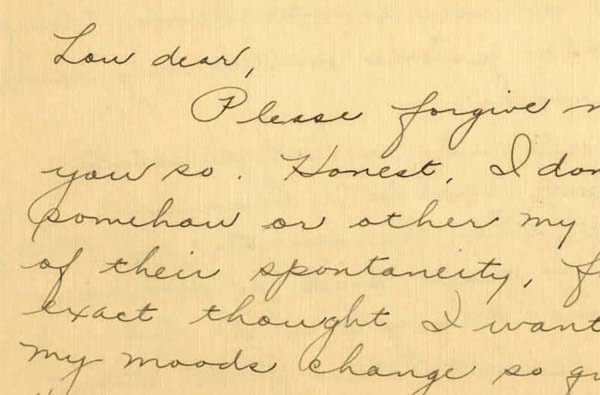 Lou dear,
Please forgive
you so. Honest, I don
somehow or other my
of their spontaneity, f
exact thought I want
my moods change so qu